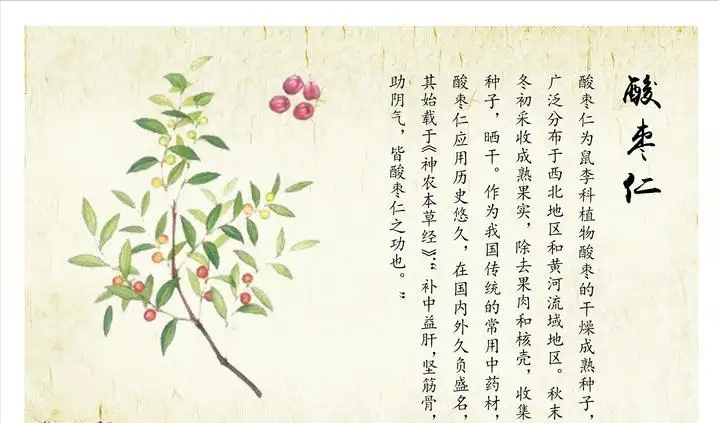 酸枣仁
酸枣仁为鼠李科植物酸枣的干燥成熟种子，
广泛分布于西北地区和黄河流域地区。秋末
冬初采收成熟果实，除去果肉和核壳，收集
种子，晒干。作为我国传统的常用中药材，
酸枣仁应用历史悠久，在国内外久负盛名，
其始载于《神农本草经》：“补中益肝，坚筋骨，
助阴气，皆酸枣仁之功也。”